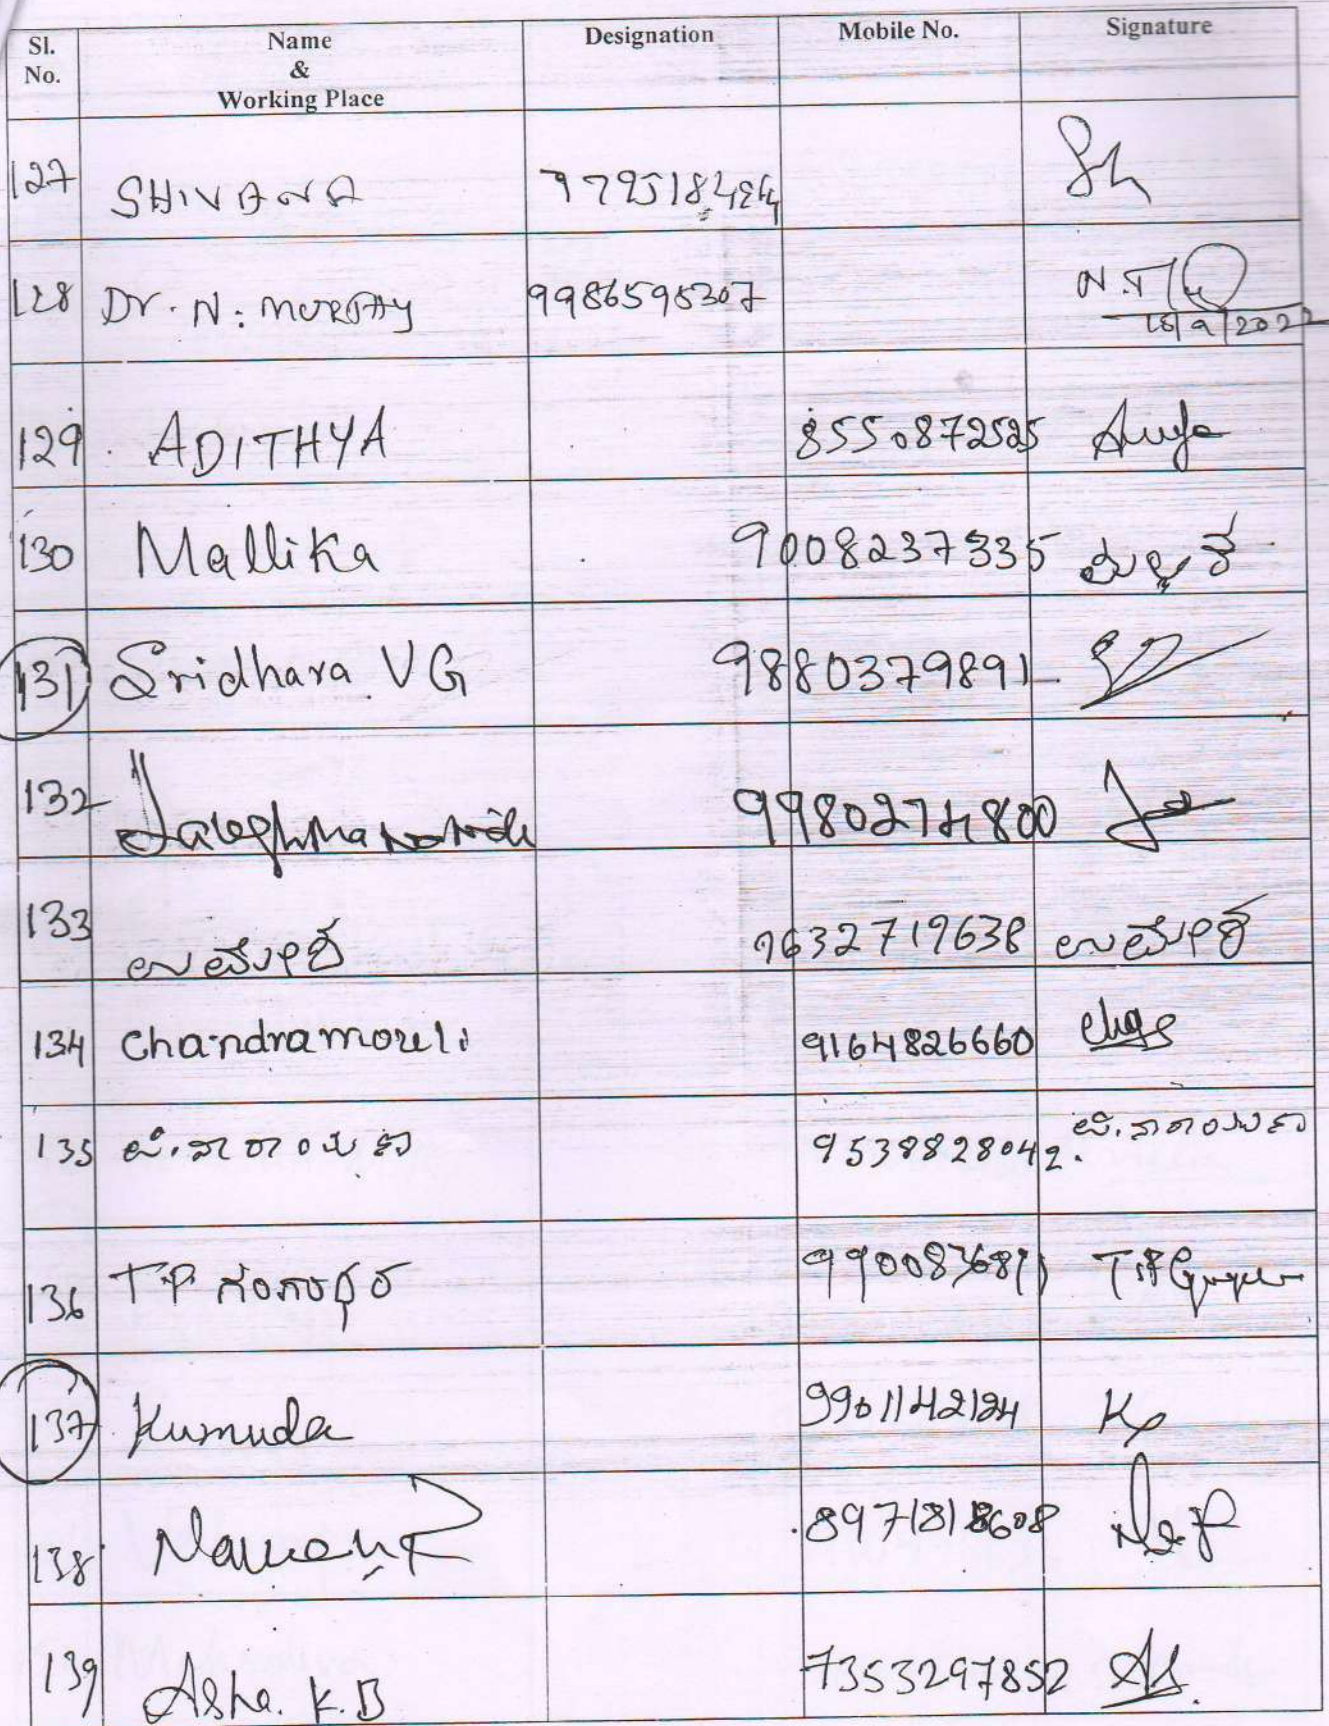 Sl. No. Name & Working Place Designation Mobile No. Signature
127 SHIVANA
128 Dr. N. MURTHY 9986595307 18/9/2022
129 ADITHYA 8550872525
130 Mallika 9008237335 ಮಲ್ಲಿಕ
131 Sridhara VG 9880379891
132 9980274800
133 ಉಮೇಶ 9632719638 ಉಮೇಶ
134 Chandramouli 9164826660
135 ಬಿ. ನಾರಾಯಣ 9538828042. ಬಿ. ನಾರಾಯಣ
136 T.P. ಗಂಗಾಧರ
137 Kumuda 9901142124
138 8971818608
139 Asha. K.B 7353297852